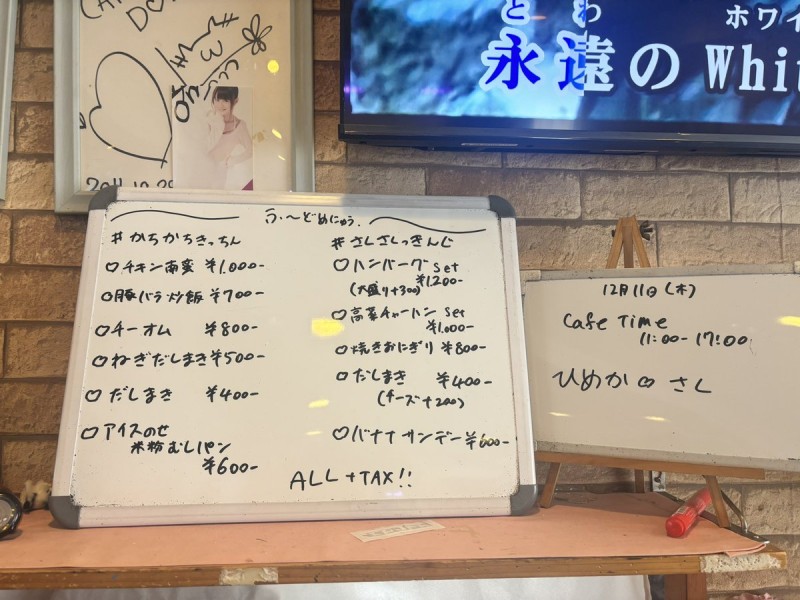 とわ
ホワイ
永遠のWhi
CA
DO
2011.10.29
ふ〜どめにゅう.
#かちかちきっちん
♡チキン南蛮 ¥1,000-
♡豚バラ炒飯 ¥700-
♡チーオム ¥800-
♡ねぎだしまき ¥500-
♡だしまき ¥400-
♡アイスのせ
米粉むしパン
¥600-
#さしさしっきんじ
♡ハンバーグ set
¥1,200-
(大盛り+300)
♡高菜チャーハン set
¥1,000-
♡焼きおにぎり ¥800-
♡だしまき ¥400-
(チーズ+200)
♡バナナサンデー ¥600-
ALL +TAX!!
12月11日(木)
Cafe Time
11:00-17:00
ひめか♡さし